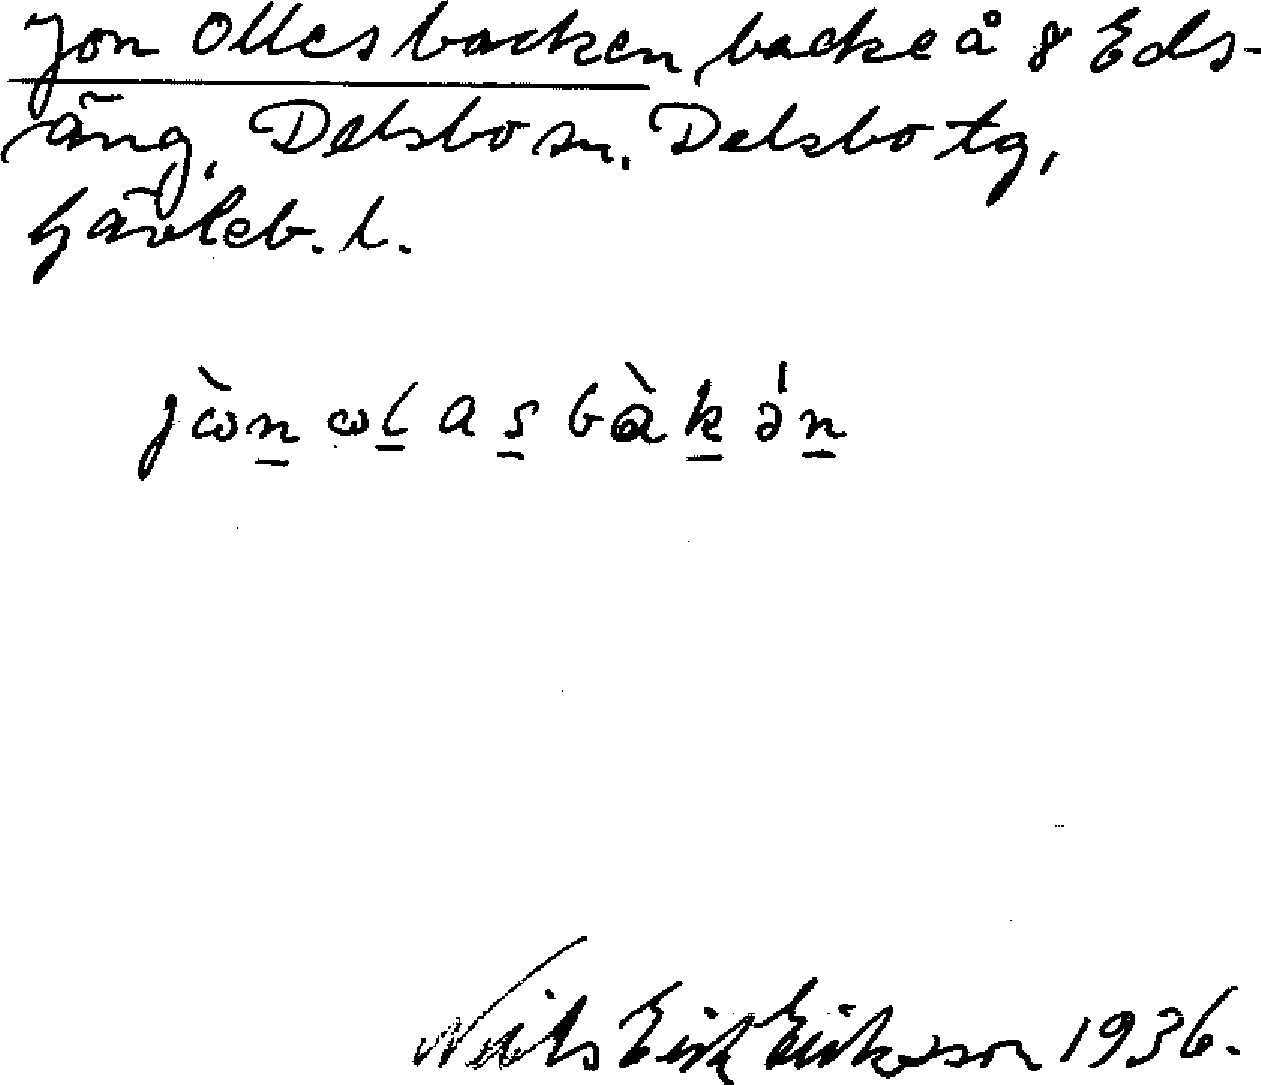 Jon Ollesbacken, backe å 8 Eds-
äng, Delsbo sn. Delsbo tg,
Gävleb. l.
jὼn ωlasbàkə́n
Nils Erik Eriksson 1936.